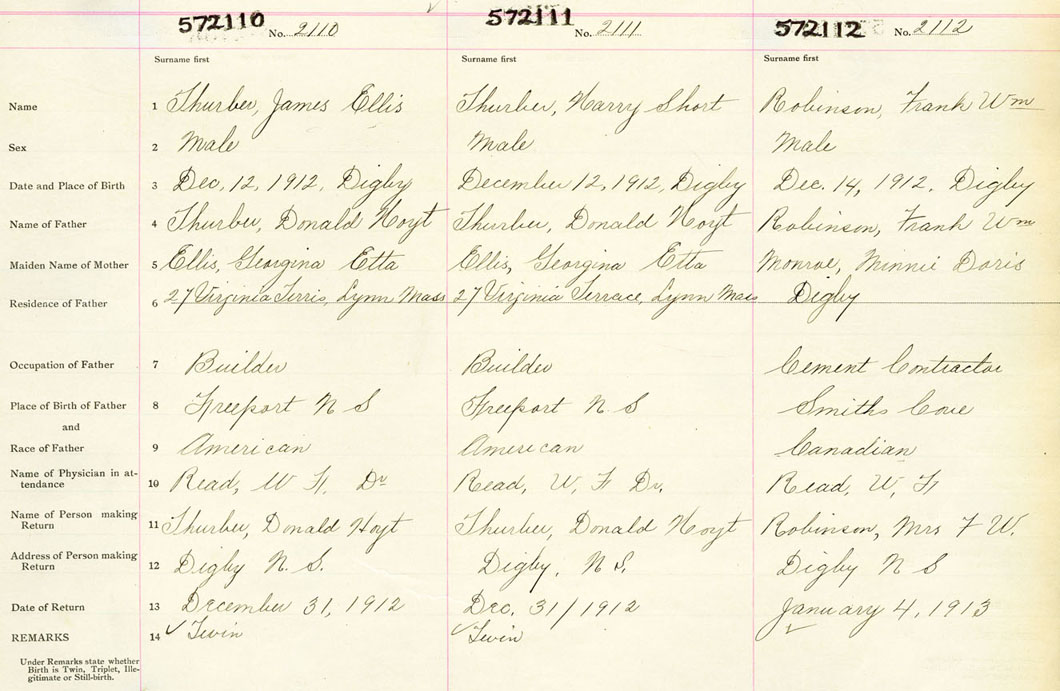 572110 No. 2110 572111 No. 2111 572112 No. 2112
Surname first Surname first Surname first
Name 1 Thurber, James Ellis Thurber, Harry Short Robinson, Frank Wm
Sex 2 Male Male Male
Date and Place of Birth 3 Dec, 12, 1912, Digby December 12, 1912, Digby Dec. 14, 1912, Digby
Name of Father 4 Thurber, Donald Hoyt Thurber, Donald Hoyt Robinson, Frank Wm
Maiden Name of Mother 5 Ellis, Georgina Etta Ellis, Georgina Etta Monroe, Minnie Doris
Residence of Father 6 27 Virginia Terris, Lynn Mass 27 Virginia Terrace, Lynn Mass Digby
Occupation of Father 7 Builder Builder Cement Contractor
Place of Birth of Father 8 Freeport N S Freeport N. S Smiths Cove
and
Race of Father 9 American American Canadian
Name of Physician in at-
tendance 10 Read, W F. Dr Read, W, F Dr. Read, W, F
Name of Person making
Return 11 Thurber, Donald Hoyt Thurber, Donald Hoyt Robinson, Mrs F W.
Address of Person making
Return 12 Digby N. S. Digby, N S. Digby N S
Date of Return 13 December 31, 1912 Dec. 31/1912 January 4, 1913
REMARKS 14 ✓ Twin ✓ Twin ✓
Under Remarks state whether
Birth is Twin, Triplet, Ille-
gitimate or Still-birth.